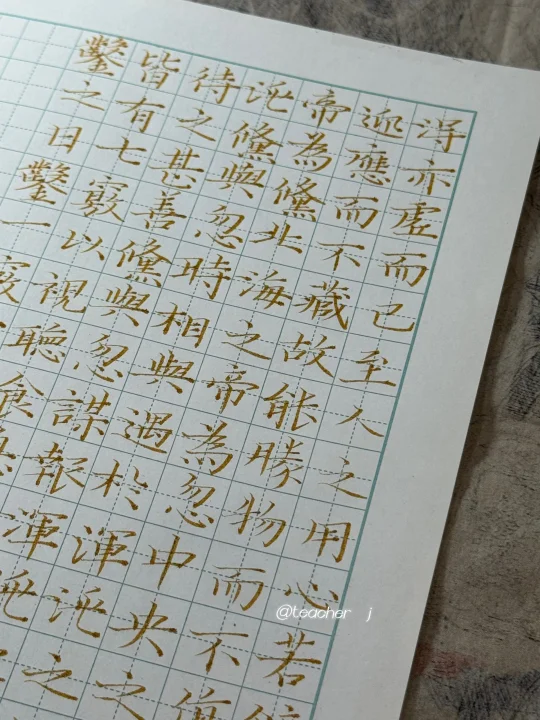 得亦虛而已至人之用心若
迎應而不藏故能勝物而不傷
帝為儵北海之帝為忽中央之
沌儵與忽時相與遇於渾沌之
待之甚善儵與忽謀報渾沌之
皆有七竅以視聽食
鑿之日鑿一竅
@teacher j